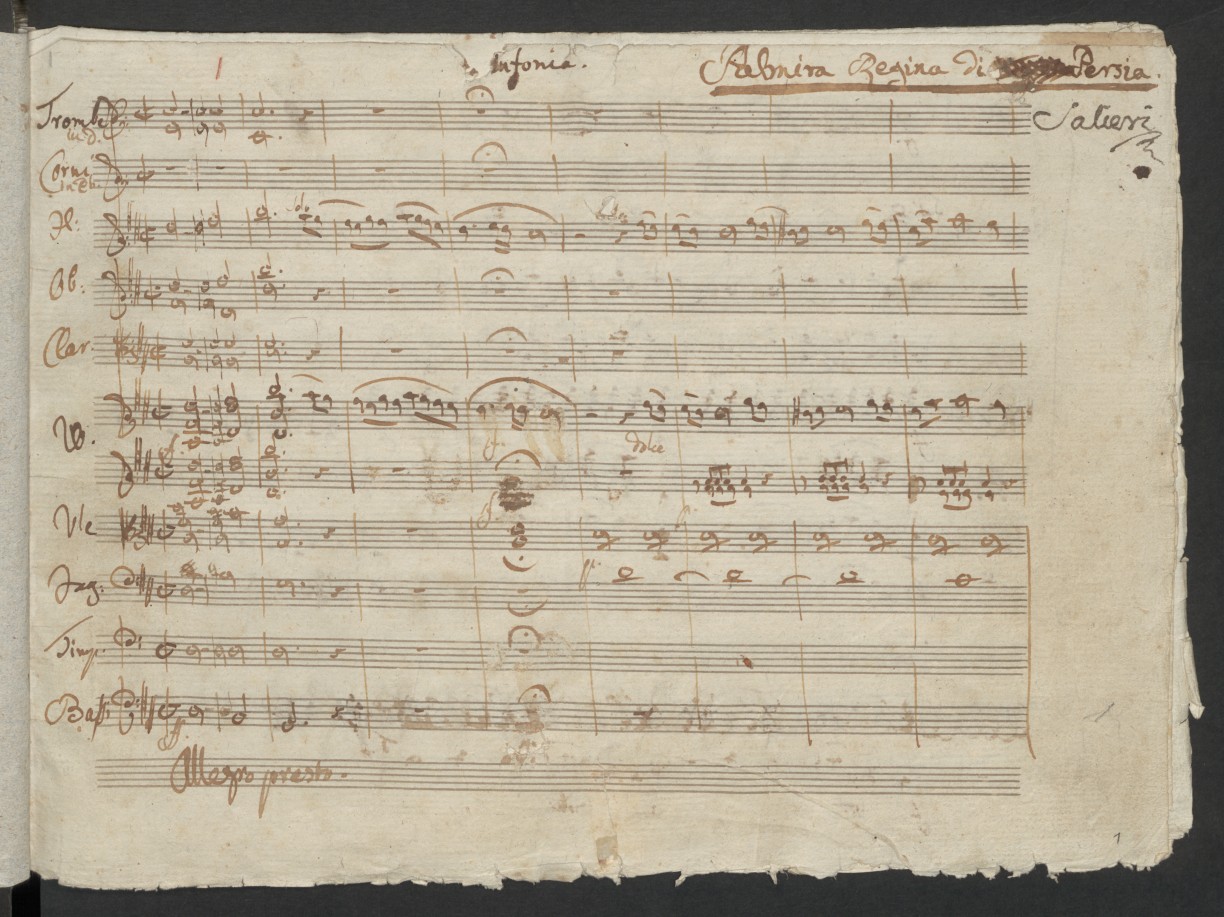 1
Sinfonia.
Palmira Regina di Persia.
Salieri
Trombe
in d.
Corni
Fl:
Ob:
Clar
VV.
dolce
Vle
Fag:
Timp.
Bassi
ff.
Allegro presto.
1